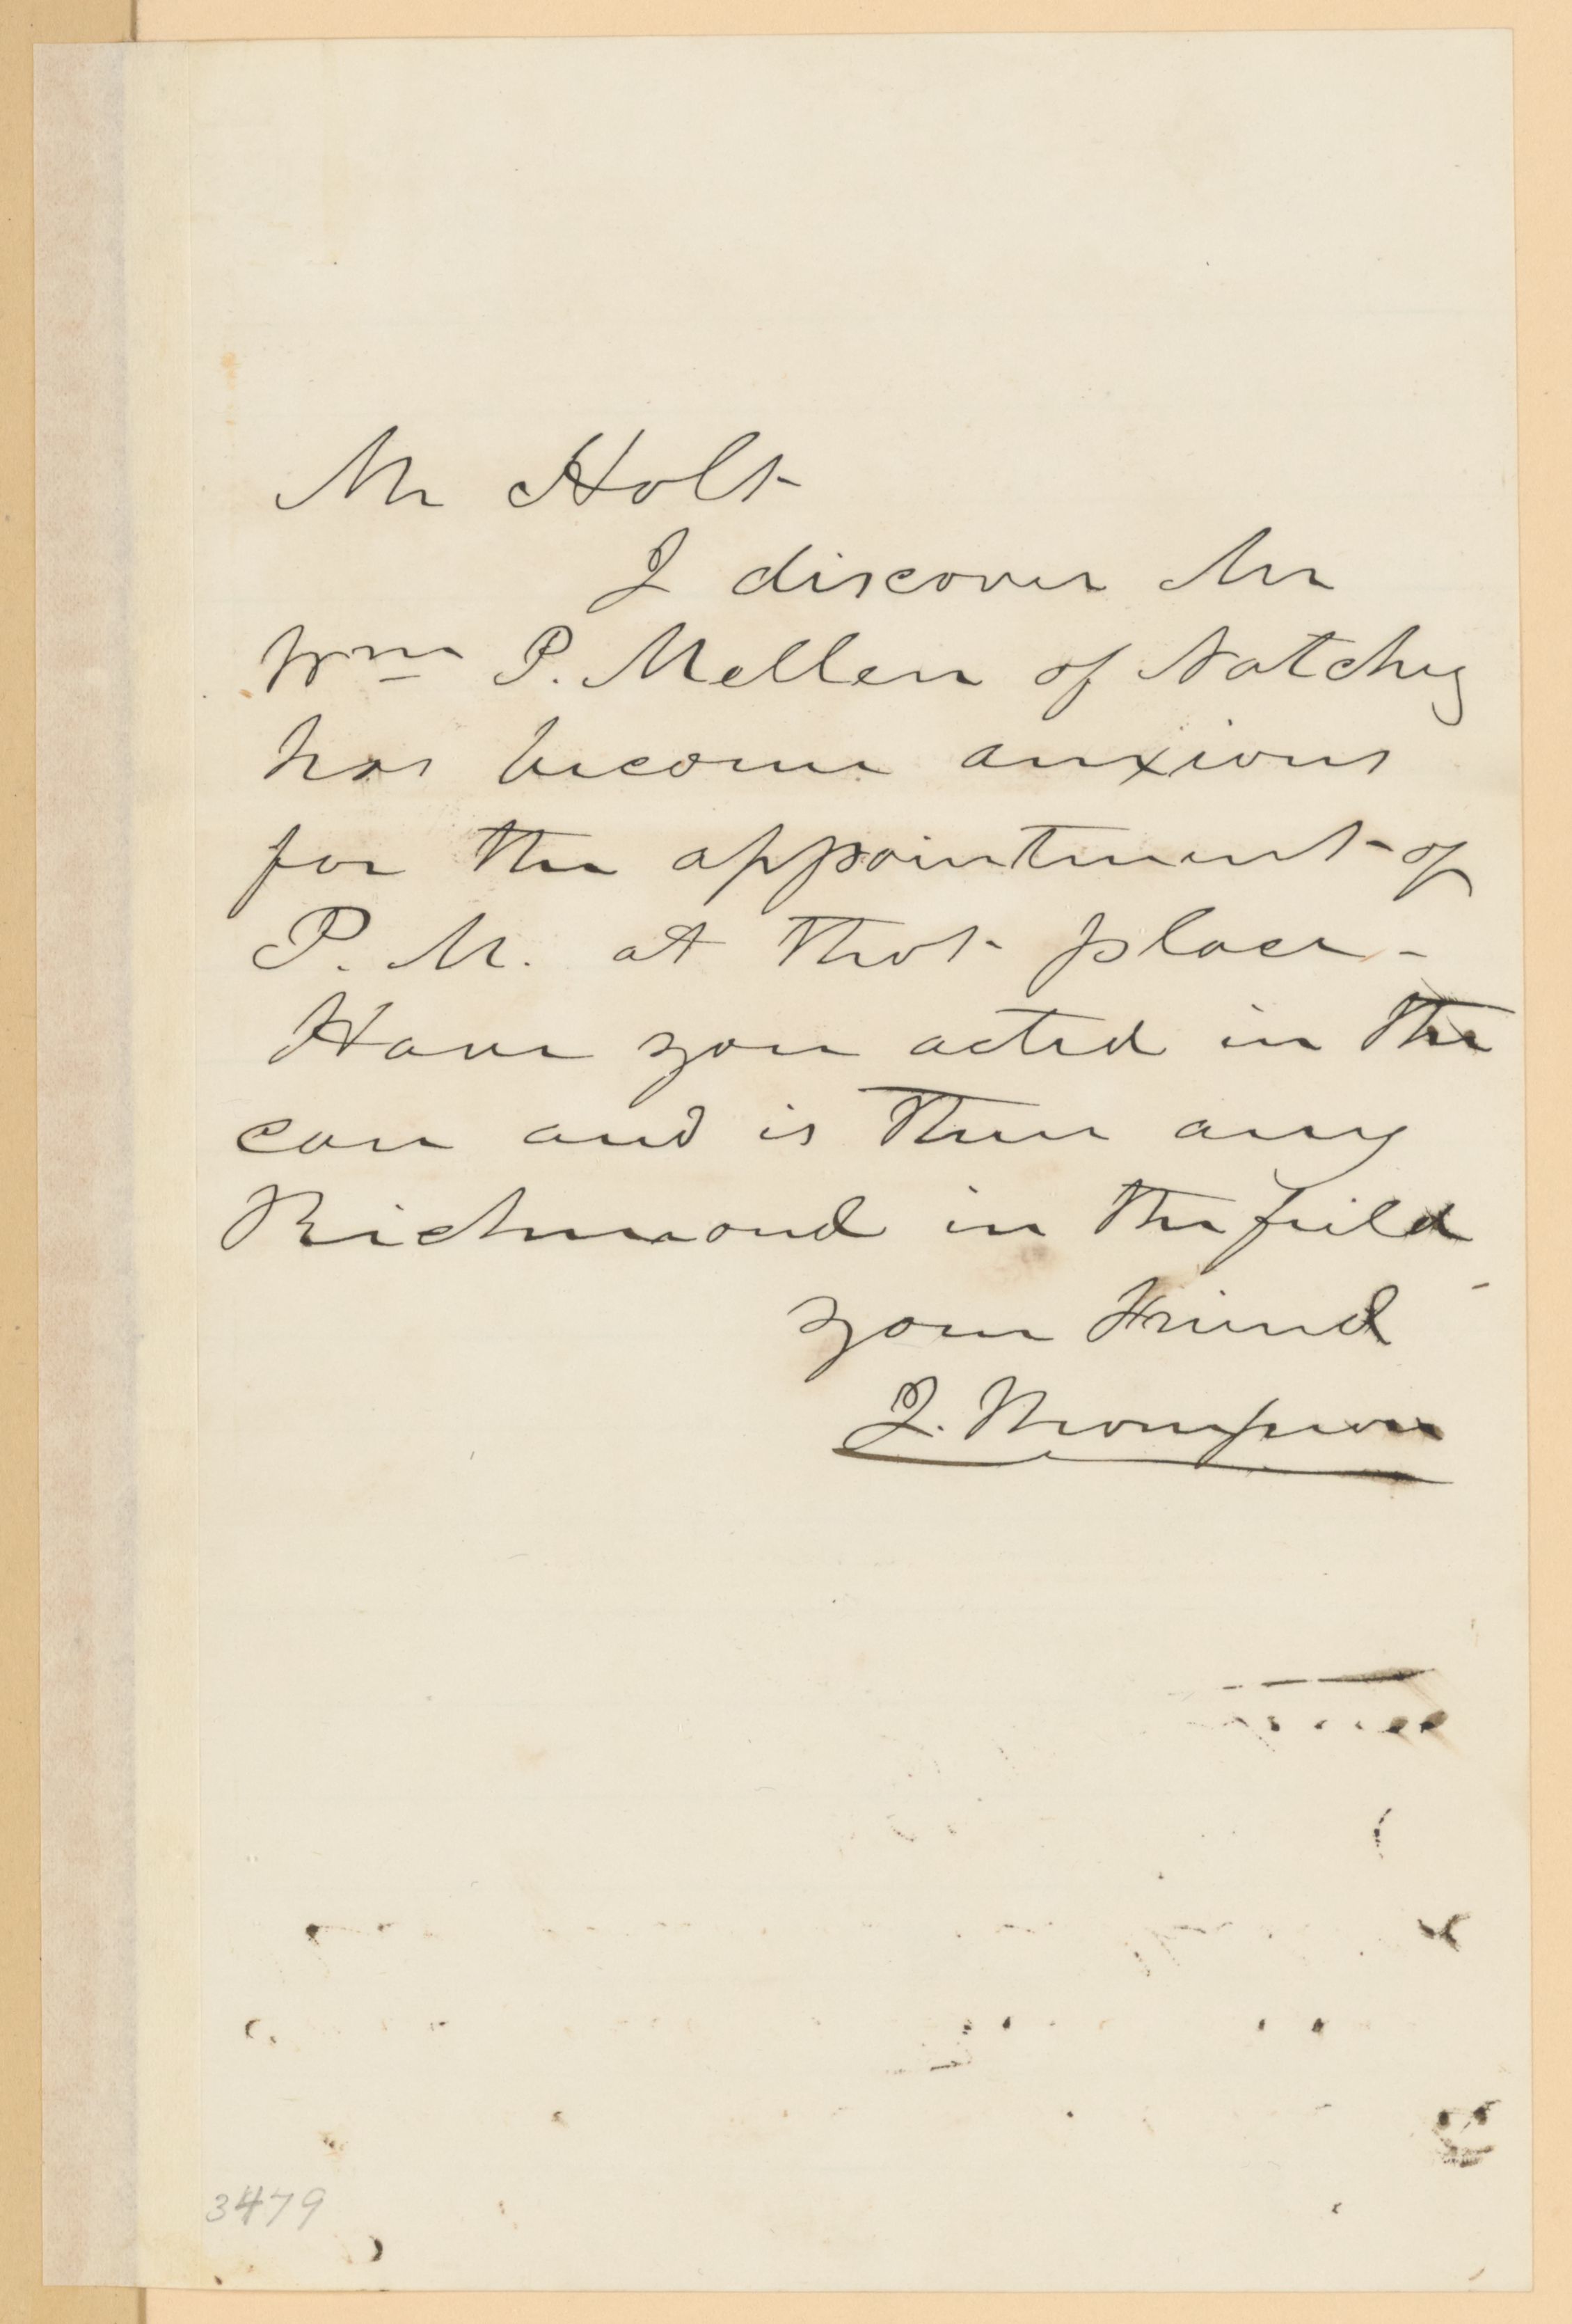 Mr Holt
I discover Mr
Wm P. Mellen of Natchez
has become anxious
for the appointment of
P. M. at that place -
Have you acted in the
case and is there any
Richmond in the field
your friend
J. Thompson
3479